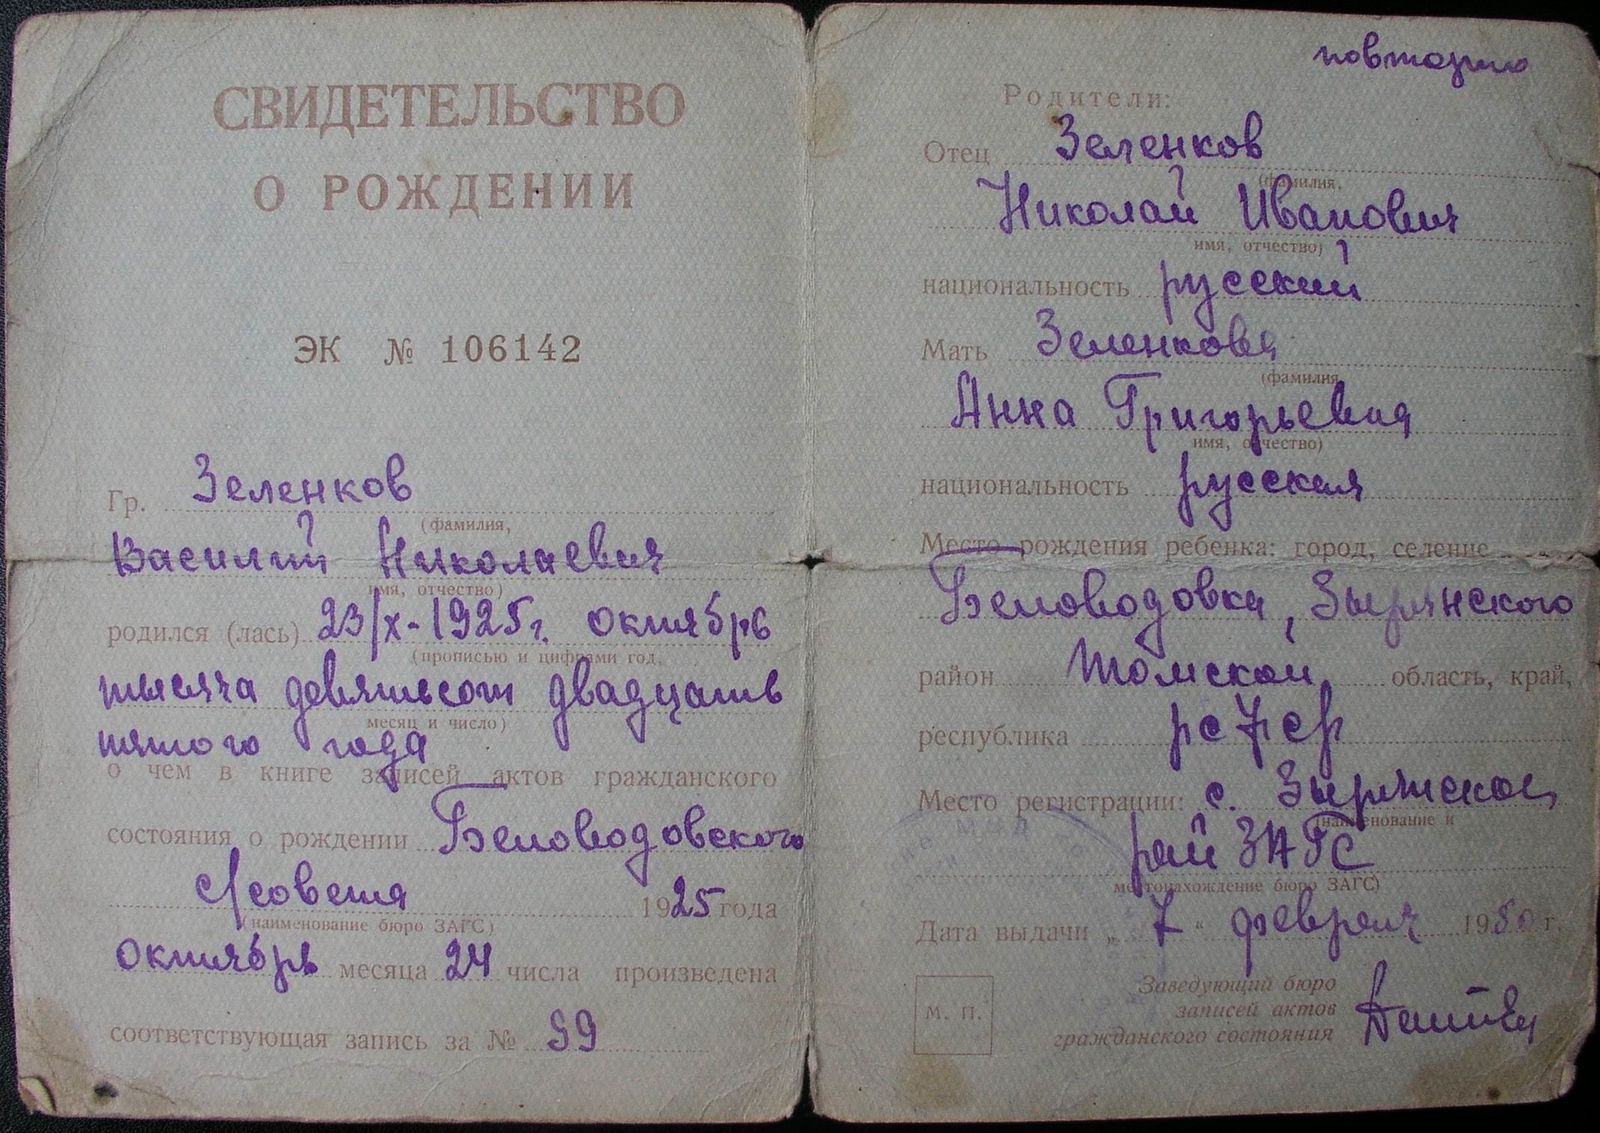 СВИДЕТЕЛЬСТВО
О РОЖДЕНИИ
ЭК № 106142
Гр. Зеленков
(фамилия,
Василий Николаевич
имя, отчество)
родился (лась) 23/X-1925г. октябрь
(прописью и цифрами год,
тысяча девятьсот двадцать
месяц и число)
пятого года
о чем в книге записей актов гражданского
состояния о рождении Беловодовского
с/совета 1925 года
(наименование бюро ЗАГС)
октябрь месяца 24 числа произведена
соответствующая запись за № 99
повторно
Родители:
Отец Зеленков
(фамилия,
Николай Иванович
имя, отчество)
национальность русский
Мать Зеленкова
(фамилия,
Анна Григорьевна
имя, отчество)
национальность русская
Место рождения ребенка: город, селение
Беловодовка, Зырянского
район Томской область, край,
республика РСФСР
Место регистрации: с. Зырянское
(наименование и
рай ЗАГС
местонахождение бюро ЗАГС)
Дата выдачи „ 7 “ февраля 1950 г.
М. П.
Заведующий бюро
записей актов
гражданского состояния